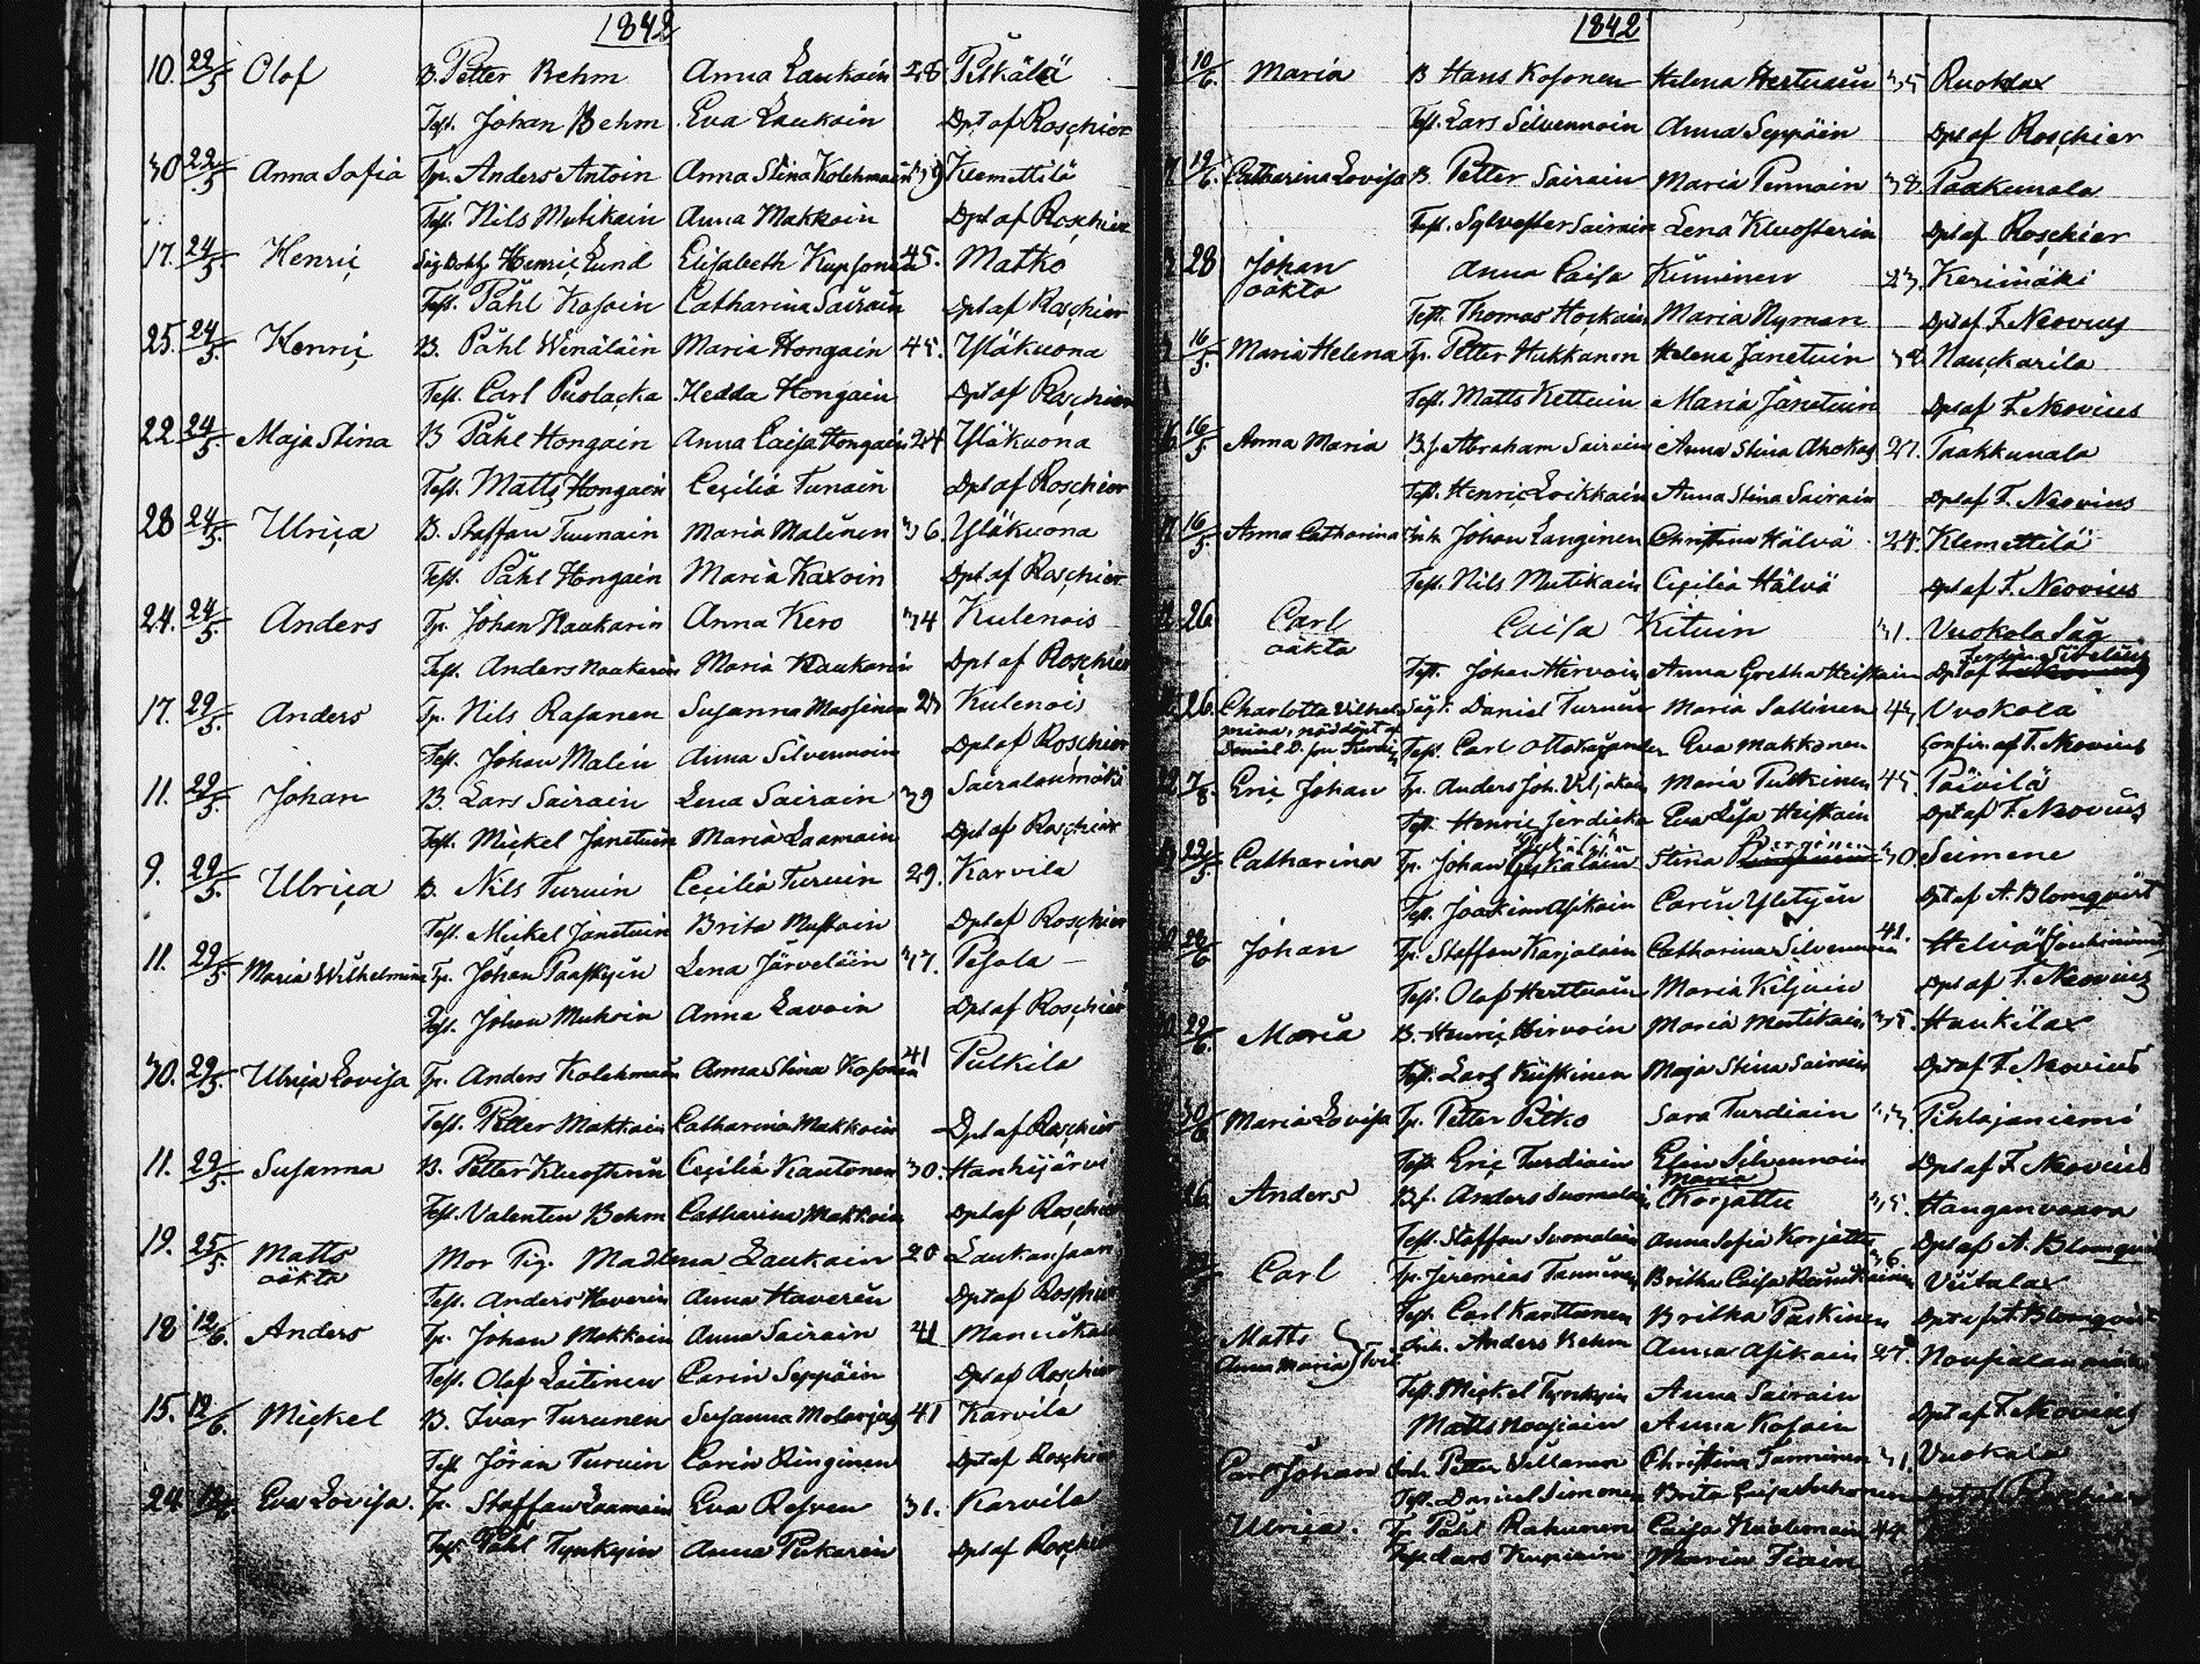 1842
10. 22/5 Olof B. Petter Behm Anna Laukain 28. Pitkälä
Test. Johan Behm Eva Laukain Dpt af Roschier
30 22/5 Anna Sofia Tp. Anders Antoin Anna Stina Kolehmain 39 Klemettilä
Test. Nils Mutikain Anna Makkoin Dpt af Roschier
17. 24/5 Henric Henric Lund Elisabeth Kupsonen 45. Matko
Test. Påhl Kosoin Catharina Sairain Dpt af Roschier
25. 24/5 Henric B. Påhl Winäläin Maria Hongain 45. Yläkuona
Test. Carl Puolacka Hedda Hongain Dpt af Roschier
22. 24/5 Maja Stina B Påhl Hongain Anna Caisa Hongain 24 Yläkuona
Test. Matts Hongain Cecilia Tunain Dpt af Roschier
28 24/5 Ulrica B. Staffan Tuunain Maria Malinen 36. Yläkuona
Test. Påhl Hongain Maria Kaxoin Dpt af Roschier
24. 24/5 Anders Tp. Johan Naukarin Anna Kero 34 Kulenois
Test. Anders Naukarin Maria Naukarin Dpt af Roschier
17. 29/5 Anders Tp. Nils Rasanen Susanna Massinen 23 Kulenois
Test. Johan Malin Anna Silvennoin Dpt af Roschier
11. 29/5 Johan B. Lars Sairain Lena Sairain 39 Sairalanmäki
Test. Mickel Jänetuin Maria Laamain Dpt af Roschier
9. 29/5 Ulrica B. Nils Turuin Cecilia Turuin 29. Karvila
Test. Mickel Jänetuin Brita Mustoin Dpt af Roschier
11. 29/5 Maria Wilhelmina Tp. Johan Paaskyin Lena Järveläin 37. Pesola
Test. Johan Muhoin Anna Lavoin Dpt af Roschier
30. 29/5 Ulrica Lovisa Tp. Anders Kolehmain Anna Stina Kosonen 41 Pulkila
Test. Petter Makkoin Catharina Makkoin Dpt af Roschier
11. 29/5 Susanna B. Petter Kluosterin Cecilia Kautonen 30. Hanhijärvi
Test. Valentin Behm Catharina Makkoin Dpt af Roschier
19. 25/5 Matts Mor Pig. Madlena Laukain 20 Laukansaari
oäkta Test. Anders Haverin Anna Haverin Dpt af Roschier
18 12/6. Anders Tp. Johan Makkoin Anna Sairain 41
Test. Olof Laitinen Carin Seppäin Dpt af Roschier
15. 19/6. Mickel B. Ivar Turunen Susanna Molarjus 41 Karvila
Test Jöran Turuin Carin Ringinen Dpt af Roschier
24 Eva Lovisa. Tp. Staffan Laamain Eva Resven 31. Karvila
Test Påhl Tynkyin Anna Pukarin Dpt af Roschier
1842
10/6. Maria B Hans Kosonen Helena Herttuain 35 Ruoklax
Test. Lars Silvennoin Anna Seppäin Dpt af Roschier
19/6. Catharina Lovisa B. Petter Sairain Maria Pennain 38. Paakunala
Test. Sylvester Sairain Lena Kluosterin Dpt af Roschier
28 Johan Anna Caisa Kiiminen 23. Kerimäki
oäkta Test. Thomas Hockain Maria Nyman Dpt af F. Neovius
16/5. Maria Helena Tp. Petter Hukkanen Helena Jänetuin Nauckarila
Test. Matts Kettuin Maria Jänetuin Dpt af F. Neovius
16/5 Anna Maria B.f. Abraham Sairain Anna Stina Ahokas 27. Paakkunala
Test. Henric Loikkain Anna Stina Sairain Dpt af F. Neovius
16/5. Anna Catharina Inh. Johan Langinen Christina Hälvä 24. Klemettilä
Test. Nils Mutikain Cecilia Hälvä Dpt af F. Neovius
26. Carl Caisa Kituin 31. Vuokala Såg
oäkta Test. Johan Hirvoin Anna Gretha Heiskain Dpt af
26. Charlotta Vilhelmina, nöddöpt af Daniel Turuin Maria Sallinen 43 Vuokala
Test. Carl Otto Eva Makkonen confir. af F. Neovius
7/8. Eric Johan Tp. Anders Joh. Viljakain Maria Pulkinen 45. Päivilä
Test. Henric Eva Lisa Heiskain Dpt af F. Neovius
22/5 Catharina Tp. Johan Stina 30. Seimene
Test. Joakim Asikain Carin Yletyin Dpt af A. Blomqvist
26/6 Johan Tp. Staffan Karjalain Catharina Silvennoin 41. Helvä
Test. Olof Herttuain Maria Kiljuin Dpt af F. Neovius
29/6. Maria B. Henric Hirvoin Maria Mutikain 35. Haukilax
Test. Lars Kiiskinen Maja Stina Sairain Dpt af F. Neovius
30/6 Maria Lovisa Tp. Petter Pitko Sara Turdiain 33 Pihlajaniemi
Test. Eric Turdiain Elin Silvennoin Dpt af F. Neovius
26. Anders B.f. Anders Suomalain Maria Korjattu 35. Hanganvaara
Test. Staffan Suomalain Anna Sofia Korjattu Dpt af A. Blomqvist
Carl Tp. Jeremias Tannuinen Britha Caisa 36 Viitalax
Test. Carl Karttunen Britha Paskinen Dpt af A. Blomqvist
Matts
Anna Maria } Tvil. Inh. Anders Behm Anna Asikain 27.
Test. Mickel Tynkyin Anna Sairain
Matts Noosiain Anna Kosoin Dpt af F. Neovius
Carl Johan Inh. Petter Villanen Christina Tanninen 31. Vuokala
Test. Daniel Simonen Brita Caisa Dpt af Roschier
Ulrica. Tp. Påhl Rahunen Caisa Kuolemain 44.
Test. Lars Kupiain Maria Tiain